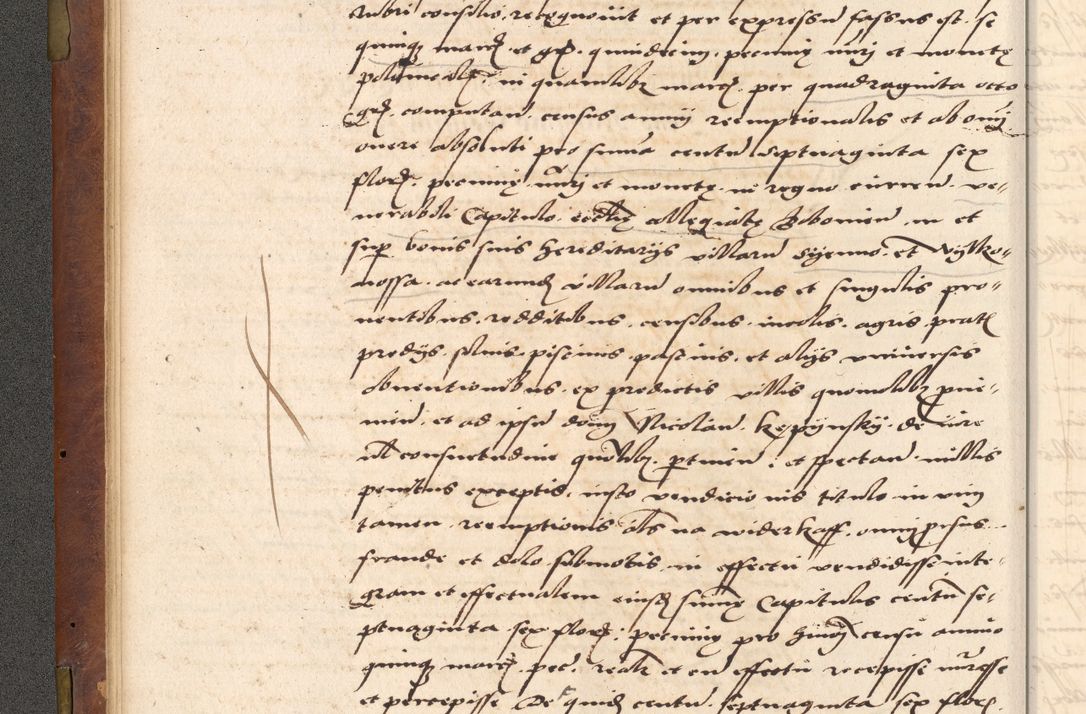 rubri consilio, recognovit et per expressu fassus est. se
quinq marc. et gr. quindecim, pecunię nrj et monetę
polonicalis, in quamlibz marc. per quadraginta octo
gr. computan. census annuj reemptionalis et ab omj
onere absoluti pro suma centu septuaginta sex
flor. pecunię nrj et monetę in regno curren. ve-
nerabili Capitulo ecclię collegiatę Bobovien. in et
sup bonis suis hereditarijs villaru Syenno. et Vylko-
nossa. ac earund villaru omnibus et singulis pro-
ventibus, redditibus, censibus, incolis, agris, prat
predijs, silvis, piscinis, pascuis, et alijs universis
obventionibus, ex predictis villis quomolibz prove-
nien. et ad ipsu dom Nicolau. Kępynsky. de iure
vl consuetudine qualibz. ptinen. et spectan. nullis
penitus exceptis, iusto vendicionis titulo in vim
tamen reemptionis als na widerkaff. omj prsus
fraude et dolo submotis, in effectu vendidisse inte-
gram et effectualem eiusd sumę Capitulis centu se-
ptuaginta sex flor. pecunię pro huiusmoi censu annuo
quinq marc. pec. realr et cu effectu recepisse nurasse
et percepisse. De quid centu septuaginta sex flor.